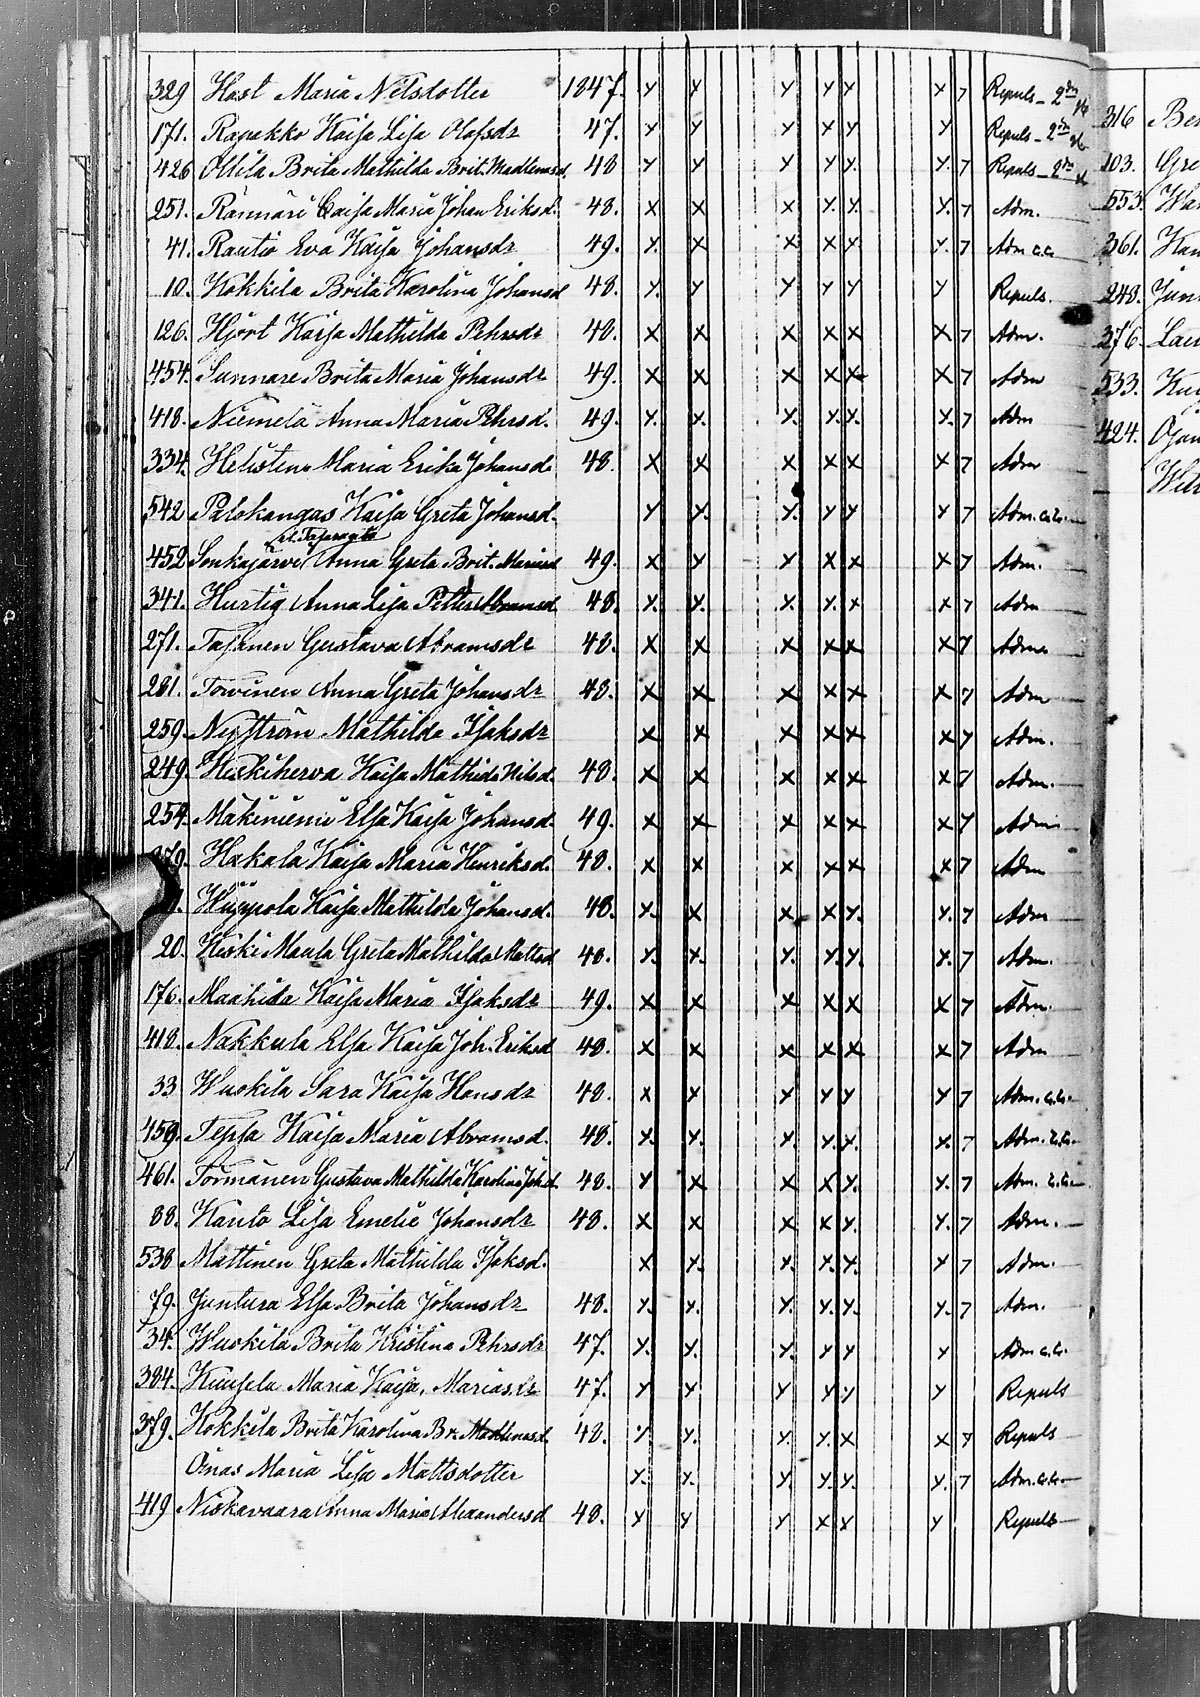 329 Host Maria Nilsdotter 1847. x x x x x x 7 Repuls - 2dra
171. Rapakko Kaisa Lisa Olofsdr 47. x x x x x x Repuls - 2dra
426 Ollila Brita Mathilda Brit. Madlenasd. 48 x x x x x x. 7 Repuls - 2dra
251. Rännäri Caisa Maria Johan Eriksd. 48. x x x x. x. x. 7 Adm.
41. Rautio Eva Kaisa Johansdr 49. x. x x x x x. 7 Adm c.c.
10. Kokkila Brita Karolina Johansd 48. x. x x x x x Repuls.
126. Hjort Kaisa Mathilda Pehrsdr 48. x x x x x x 7 Adm.
454. Sunnare Brita Maria Johansdr 49. x x x x x x 7 Adm
418. Niemelä Anna Maria Pehrsd. 49. x. x. x. x. x. x. 7 Adm
334. Helisten Maria Erika Johansd. 48. x x x x x x 7 Adm
542 Palokangas Kaisa Greta Johansd. x x x. x x x 7 Adm. c.c.
452 Sonkajärvi Anna Greta Brit. Mariasd 49. x x x x x x 7 Adm.
341. Hurtig Anna Lisa Petter Abramsd. 48. x. x. x. x. x x 7 Adm
271. Tapanen Gustava Abramsdr 48. x x x x x x 7 Adm
281. Torvinen Anna Greta Johansdr 48. x x x x x x 7 Adm
259. Nyström Mathilda Isaksdr x x x x x x 7 Adm.
249. Keskiherva Kaisa Mathilda Nilsd. 48. x x x x x x 7 Adm.
254. Mäkiniemi Elsa Kaisa Johansd. 49. x x x x x x 7 Adm
379. Hakala Kaisa Maria Henriksd. 48. x x x x x x 7 Adm
1. Kuppola Kaisa Mathilda Johansd. 48. x. x x x x. x. 7 Adm
20. Keski Maula Greta Mathilda Mattsd 48. x. x. x. x. x. x. 7 Adm.
176. Maahida Kaisa Maria Isaksdr 49. x x x x x x 7 Adm.
418. Nakkula Elsa Kaisa Joh. Eriksd 48. x x x x x x 7 Adm
33 Wuokila Sara Kaisa Hansdr 48. x x x x x x 7 Adm. c.c.
459. Tepsa Kaisa Maria Abramsd. 48. x. x. x. x. x. x. 7 Adm. c.c.
461. Törmänen Gustava Mathilda Karolina Joh.d. 48. x x x x x. x. 7 Adm. c.c.
88. Kauto Lisa Emelie Johansdr 48. x x x x x. x. 7 Adm.
538 Mattinen Greta Mathilda Isaksd. x x. x. x. x. x 7 Adm.
79. Juntura Elsa Brita Johansdr 48. x. x. x. x. x. x. 7 Adm.
34. Wuokila Brita Kristina Pehrsdr 47. x. x. x. x x x Adm c.c.
384. Kuusela Maria Kaisa, Mariasdr 47. x x x x x x Repuls
379. Kokkila Brita Karolina Br. Madlenasd. 48. x x. x. x. x x 7 Repuls
Oinas Maria Lisa Mattsdotter x. x. x. x. x. x. 7 Adm. c.c.
419 Niskavaara Anna Maria Alexandersd 48. x x x x x x Repuls
316
103. Gre
553.
361.
248. Jun
376. Lau
533.
424. Ojan